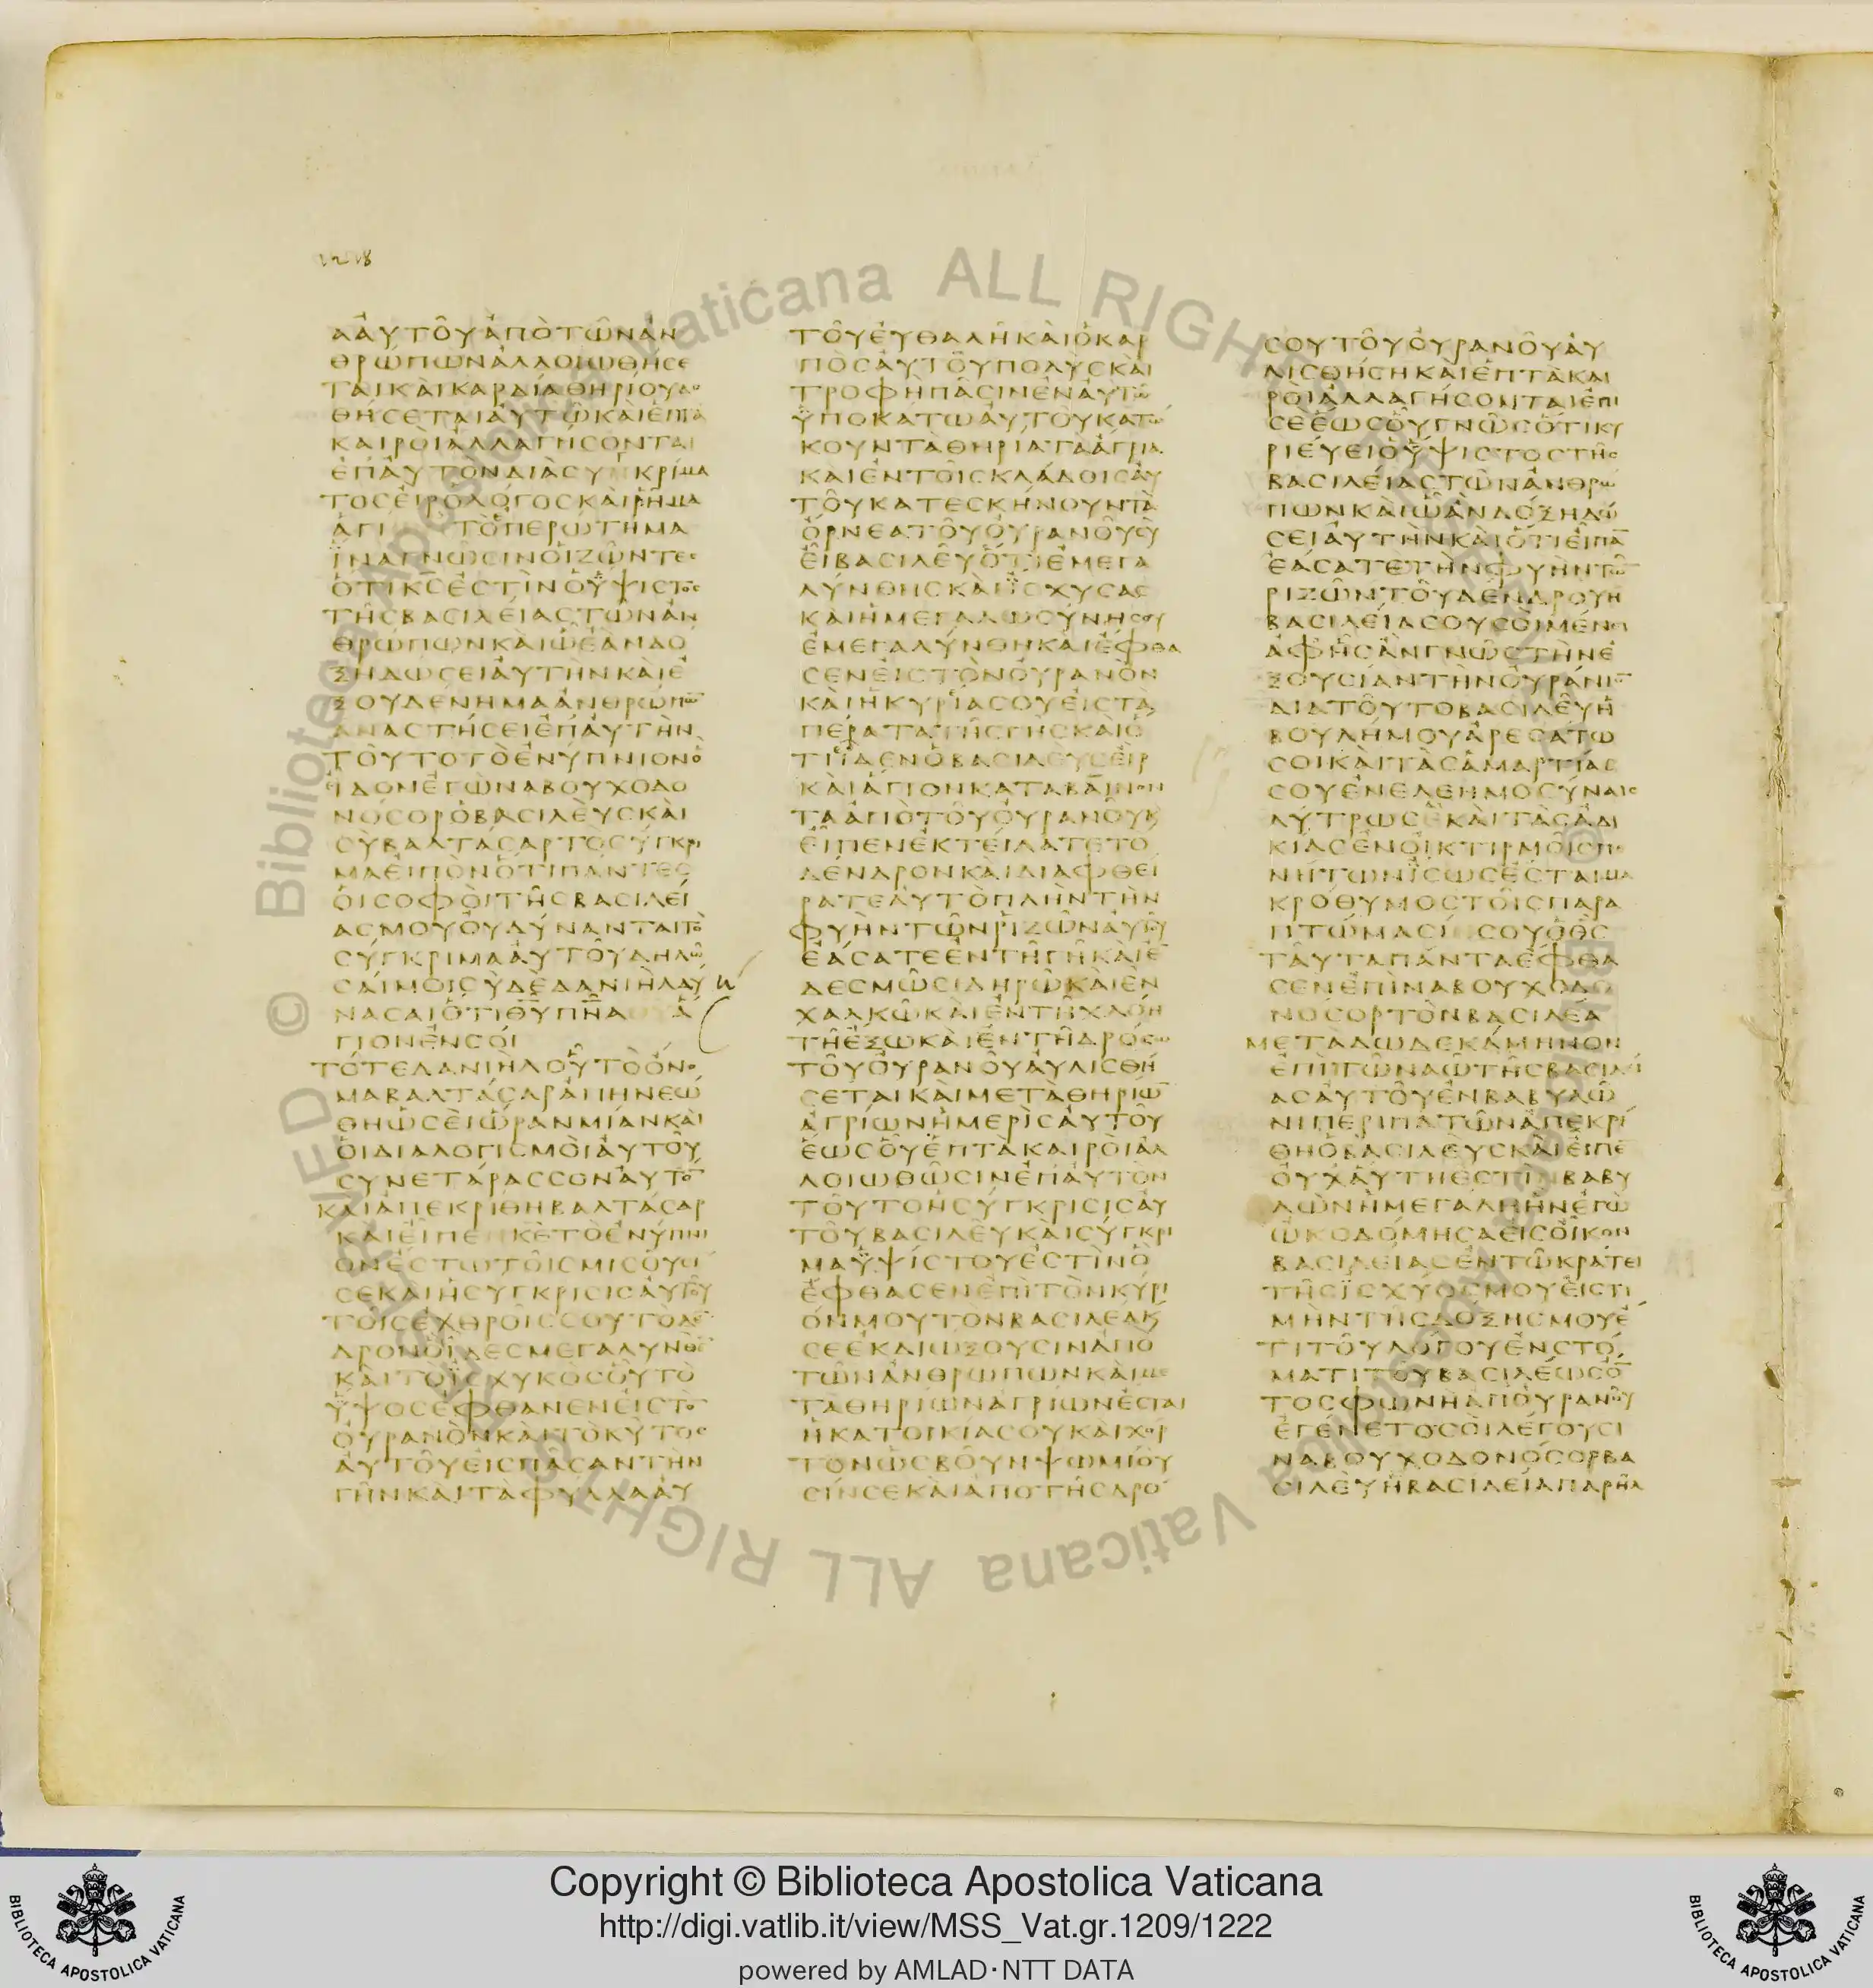 1218
ΑΑΥΤΟΥΑΠΟΤΩΝΑΝ
ΘΡΩΠΩΝΑΛΛΟΙΩΘΗϹΕ
ΤΑΙΚΑΙΚΑΡΔΙΑΘΗΡΙΟΥΔΟ
ΘΗϹΕΤΑΙΑΥΤΩΚΑΙΕΠΤΑ
ΚΑΙΡΟΙΑΛΛΑΓΗϹΟΝΤΑΙ
ΕΠΑΥΤΟΝΔΙΑϹΥΓΚΡΙΜΑ
ΤΟϹΕΙΡΟΛΟΓΟϹΚΑΙΡΗΜΑ
ΑΓΙ ΤΟΠΕΡΩΤΗΜΑ
ΪΝΑΓΝΩϹΙΝΟΙΖΩΝΤΕϹ
ΟΤΙΚ̅Ϲ̅ΕϹΤΙΝΟΫΨΙϹΤΟϹ
ΤΗϹΒΑϹΙΛΕΙΑϹΤΩΝΑΝ
ΘΡΩΠΩΝΚΑΙΩΕΑΝΔΟ
ΞΗΔΩϹΕΙΑΥΤΗΝΚΑΙΕ
ΞΟΥΔΕΝΗΜΑΑΝΘΡΩΠΩ̅
ΑΝΑϹΤΗϹΕΙΕΠΑΥΤΗΝ
ΤΟΥΤΟΤΟΕΝΥΠΝΙΟΝΟ
ΪΔΟΝΕΓΩΝΑΒΟΥΧΟΔΟ
ΝΟϹΟΡΟΒΑϹΙΛΕΥϹΚΑΙ
ϹΥΒΑΛΤΑϹΑΡΤΟϹΥΓΚΡΙ
ΜΑΕΙΠΟΝΟΤΙΠΑΝΤΕϹ
ΟΙϹΟΦΟΙΤΗϹΒΑϹΙΛΕΙ
ΑϹΜΟΥΟΥΔΥΝΑΝΤΑΙΤΟ
ϹΥΓΚΡΙΜΑΑΥΤΟΥΔΗΛΩ
ϹΑΙΜΟΙϹΥΔΕΔΑΝΙΗΛΔΥ
ΝΑϹΑΙΟΤΙΘ̅Υ̅Π̅Ν̅Α Α
ΓΙΟΝΕΝϹΟΙ
ΤΟΤΕΔΑΝΙΗΛΟΥΤΟΟΝΟ
ΜΑΒΑΛΤΑϹΑΡΑΠΗΝΕΩ
ΘΗΩϹΕΙΩΡΑΝΜΙΑΝΚΑΙ
ΟΙΔΙΑΛΟΓΙϹΜΟΙΑΥΤΟΥ
ϹΥΝΕΤΑΡΑϹϹΟΝΑΥΤΟ̅
ΚΑΙΑΠΕΚΡΙΘΗΒΑΛΤΑϹΑΡ
ΚΑΙΕΙΠΕ Κ̅Ε̅ΤΟΕΝΥΠΝΙ
ΟΝΕϹΤΩΤΟΙϹΜΙϹΟΥϹΙ
ϹΕΚΑΙΗϹΥΓΚΡΙϹΙϹΑΥΤΟΥ
ΤΟΙϹΕΧΘΡΟΙϹϹΟΥΤΟΔΕ̅
ΔΡΟΝΟΪΔΕϹΜΕΓΑΛΥΝΘΕ̅
ΚΑΙΤΟΪϹΧΥΚΟϹΟΥΤΟ
ΫΨΟϹΕΦΘΑΝΕΝΕΙϹΤΟ̅
ΟΥΡΑΝΟΝΚΑΙΤΟΚΥΤΟϹ
ΑΥΤΟΥΕΙϹΠΑϹΑΝΤΗΝ
ΓΗΝΚΑΙΤΑΦΥΛΛΑΑΥ
ΤΟΥΕΥΘΑΛΗΚΑΙΟΚΑΡ
ΠΟϹΑΥΤΟΥΠΟΛΥϹΚΑΙ
ΤΡΟΦΗΠΑϹΙΝΕΝΑΥΤΩ
ΫΠΟΚΑΤΩΑΥΤΟΥΚΑΤΩ
ΚΟΥΝΤΑΘΗΡΙΑΤΑΑΓΡΙΑ
ΚΑΙΕΝΤΟΙϹΚΛΑΔΟΙϹΑΥ
ΤΟΥΚΑΤΕϹΚΗΝΟΥΝΤΑ
ΟΡΝΕΑΤΟΥΟΥΡΑΝΟΥϹΥ
ΕΙΒΑϹΙΛΕΥΟΤΙΕΜΕΓΑ
ΛΥΝΘΗϹΚΑΙΪϹΧΥϹΑϹ
ΚΑΙΗΜΕΓΑΛΩϹΥΝΗϹΟΥ
ΕΜΕΓΑΛΥΝΘΗΚΑΙΕΦΘΑ
ϹΕΝΕΙϹΤΟΝΟΥΡΑΝΟΝ
ΚΑΙΗΚΥΡΙΑϹΟΥΕΙϹΤΑ
ΠΕΡΑΤΑΤΗϹΓΗϹΚΑΙΟ
ΤΙΪΔΕΝΟΒΑϹΙΛΕΥϹΕΙΡ
ΚΑΙΑΓΙΟΝΚΑΤΑΒΑΙΝΟΝ
ΤΑΑΠΟΤΟΥΟΥΡΑΝΟΥΚ
ΕΙΠΕΝΕΚΤΕΙΛΑΤΕΤΟ
ΔΕΝΔΡΟΝΚΑΙΔΙΑΦΘΕΙ
ΡΑΤΕΑΥΤΟΠΛΗΝΤΗΝ
ΦΥΗΝΤΩΝΡΙΖΩΝΑΥΤΟΥ
ΕΑϹΑΤΕΕΝΤΗΓΗΚΑΙΕ̅
ΔΕϹΜΩϹΙΔΗΡΩΚΑΙΕΝ
ΧΑΛΚΩΚΑΙΕΝΤΗΧΛΟΗ
ΤΗΕΞΩΚΑΙΕΝΤΗΔΡΟϹΩ
ΤΟΥΟΥΡΑΝΟΥΑΥΛΙϹΘΗ
ϹΕΤΑΙΚΑΙΜΕΤΑΘΗΡΙΩ̅
ΑΓΡΙΩΝΗΜΕΡΙϹΑΥΤΟΥ
ΕΩϹΟΥΕΠΤΑΚΑΙΡΟΙΑΛ
ΛΟΙΩΘΩϹΙΝΕΠΑΥΤΟΝ
ΤΟΥΤΟΗϹΥΓΚΡΙϹΙϹΑΥ
ΤΟΥΒΑϹΙΛΕΥΚΑΙϹΥΓΚΡΙ
ΜΑΫΨΙϹΤΟΥΕϹΤΙΝΟ
ΕΦΘΑϹΕΝΕΠΙΤΟΝΚΥΡΙ
ΟΝΜΟΥΤΟΝΒΑϹΙΛΕΑΚ
ϹΕΕΚΔΙΩΞΟΥϹΙΝΑΠΟ
ΤΩΝΑΝΘΡΩΠΩΝΚΑΙΜΕ
ΤΑΘΗΡΙΩΝΑΓΡΙΩΝΕϹΤΑΙ
ΗΚΑΤΟΙΚΙΑϹΟΥΚΑΙΧΟΡ
ΤΟΝΩϹΒΟΥΝΨΩΜΙΟΥ
ϹΙΝϹΕΚΑΙΑΠΟΤΗϹΔΡΟ
ϹΟΥΤΟΥΟΥΡΑΝΟΥΑΥ
ΛΙϹΘΗϹΗΚΑΙΕΠΤΑΚΑΙ
ΡΟΙΑΛΛΑΓΗϹΟΝΤΑΙΕΠΙ
ϹΕΕΩϹΟΥΓΝΩϹΟΤΙΚΥ
ΡΙΕΥΕΙΟΫΨΙϹΤΟϹΤΗϹ
ΒΑϹΙΛΕΙΑϹΤΩΝΑΝΘΡΩ
ΠΩΝΚΑΙΩΑΝΔΟΞΗΔΩ
ϹΕΙΑΥΤΗΝΚΑΙΟΤΙΕΙΠΑ̅
ΕΑϹΑΤΕΤΗΝΦΥΗΝΤΩ̅
ΡΙΖΩΝΤΟΥΔΕΝΔΡΟΥΗ
ΒΑϹΙΛΕΙΑϹΟΥϹΟΙΜΕΝΕΙ
ΑΦΗϹΑΝΓΝΩϹΤΗΝΕ
ΞΟΥϹΙΑΝΤΗΝΟΥΡΑΝΙΟ̅
ΔΙΑΤΟΥΤΟΒΑϹΙΛΕΥΗ
ΒΟΥΛΗΜΟΥΑΡΕϹΑΤΩ
ϹΟΙΚΑΙΤΑϹΑΜΑΡΤΙΑϹ
ϹΟΥΕΝΕΛΕΗΜΟϹΥΝΑΙϹ
ΛΥΤΡΩϹΕ ΚΑΙΤΑϹΑΔΙ
ΚΙΑϹΕΝΟΙΚΤΙΡΜΟΙϹΠΕ
ΝΗΤΩΝΪϹΩϹΕϹΤΑΙΜΑ
ΚΡΟΘΥΜΟϹΤΟΙϹΠΑΡΑ
ΠΤΩΜΑϹΙ ϹΟΥΟΘ̅Ϲ̅
ΤΑΥΤΑΠΑΝΤΑΕΦΘΑ
ϹΕΝΕΠΙΝΑΒΟΥΧΟΔΟ
ΝΟϹΟΡΤΟΝΒΑϹΙΛΕΑ
ΜΕΤΑΔΩΔΕΚΑΜΗΝΟΝ
ΕΠΙΤΩΝΑΩΤΗϹΒΑϹΙΛΕΙ
ΑϹΑΥΤΟΥΕΝΒΑΒΥΛΩ
ΝΙΠΕΡΙΠΑΤΩΝΑΠΕΚΡΙ
ΘΗΟΒΑϹΙΛΕΥϹΚΑΙΕΙΠΕ̅
ΟΥΧΑΥΤΗΕϹΤΙΝΒΑΒΥ
ΛΩΝΗΜΕΓΑΛΗΗΝΕΓΩ
ΩΚΟΔΟΜΗϹΑΕΙϹΟΙΚΟΝ
ΒΑϹΙΛΕΙΑϹΕΝΤΩΚΡΑΤΕΙ
ΤΗϹΪϹΧΥΟϹΜΟΥΕΙϹΤΙ
ΜΗΝΤΗϹΔΟΞΗϹΜΟΥΕ̅
ΤΙΤΟΥΛΟΓΟΥΕΝϹΤΟ
ΜΑΤΙΤΟΥΒΑϹΙΛΕΩϹΟ̅
ΤΟϹΦΩΝΗΑΠΟΥΡΑΝΟΥ
ΕΓΕΝΕΤΟϹΟΙΛΕΓΟΥϹΙ
ΝΑΒΟΥΧΟΔΟΝΟϹΟΡΒΑ
ϹΙΛΕΥΗΒΑϹΙΛΕΙΑΠΑΡΗΛ
Copyright © Biblioteca Apostolica Vaticana
http://digi.vatlib.it/view/MSS_Vat.gr.1209/1222
powered by AMLAD·NTT DATA
BIBLIOTECA APOSTOLICA VATICANA
BIBLIOTECA APOSTOLICA VATICANA